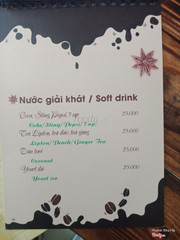 Nước giải khát / Soft drink
Coca, Sting, Pepsi, 7 up 25.000
Coke/Sting/Pepsi/7 up
Trà Lipton, trà đào, trà gừng 25.000
Lipton/Peach/Ginger Tea
Dừa tươi 25.000
Coconut
Yaout đá 25.000
Yaout ice